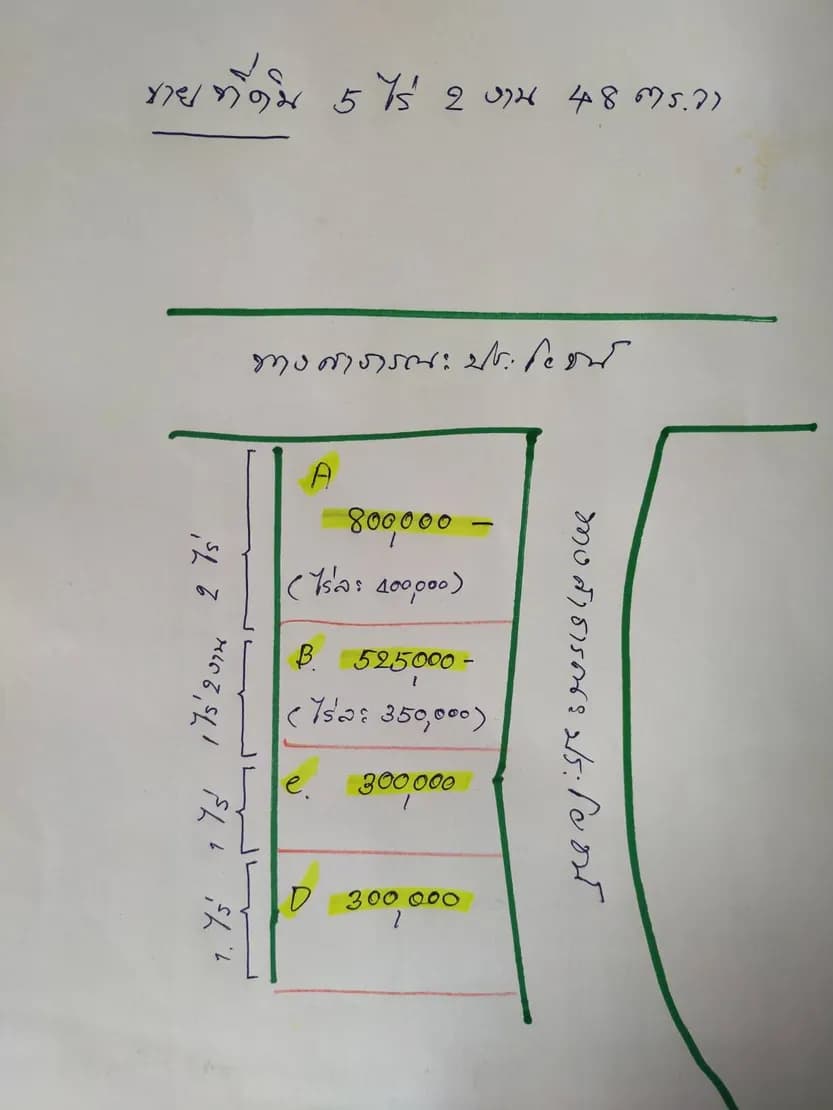 ขายที่ดิน 5 ไร่ 2 งาน 48 ตร.วา
ทางสาธารณะประโยชน์
A
800,000 -
(ไร่ละ 400,000)
2 ไร่
B.
525,000-
(ไร่ละ 350,000)
1 ไร่ 2 งาน
C.
300,000
1 ไร่
D
300,000
1. ไร่
ทางสาธารณะประโยชน์